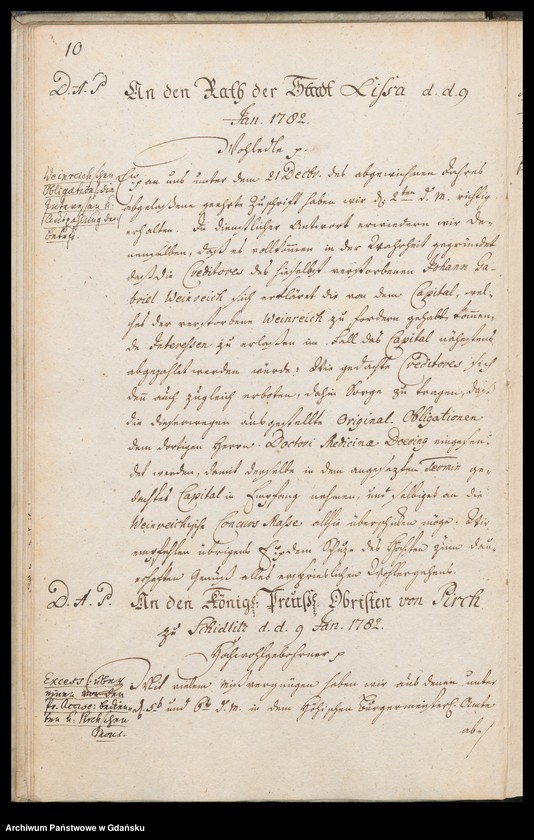 10
D. A. P. An den Rath der Stadt Lissa d. d. 9
Jan. 1782.
Wohledle p.
Weinreichschen
Obligationen die
Interessen u.
Auszahlung des
betreff.
an uns unter dem 21 Decbr. des abgewichenen Jahres
abgelassene geehrte Zuschrift haben wir d. 2ten J. M. richtig
erhalten. In dienstlicher Antwort erwiedern wir De-
nenselben, daß es vollkommen in der Wahrheit gegründet
daß die Creditores des hieselbst verstorbenen Johann Ga-
briel Weinreich sich erkläret die von dem Capital, wel-
ches der verstorbene Weinreich zu fordern gehabt, kommen-
de Interessen zu erlaßen im Fall das Capital nächstens
abgezahlet werden würde: Wie gedachte Creditores sich
denn auch zugleich erboten, dahin Sorge zu tragen, daß
die dieserwegen ausgestellte Original Obligationen
dem dortigen Herrn Doctori Medicinæ Doering eingesen-
det werden, damit derselbe in dem angesezten Termin ge-
dachtes Capital in Empfang nehmen, und selbiges an die
Weinreichsche Concurs Masse allhie überschicken möge. Wir
empfehlen übrigens dem Schuze des Höchsten zum dau-
erhaften Genuß alles ersprieslichen Wohlergehens.
D. A. P. An den Königl. Preußl. Obristen von Pirch
zu Schidlitz d. d. 9 Jan. 1782.
Hochwohlgebohrner p
Excess über
einen von den
Pr. Accise-bedien-
ten u. Pirchschen
Mous-
Mit vielem Misvergnügen haben wir aus denen unter
d. 5t und 6t J. M. in dem Höhischen Bürgermeisterl. Amte
abe/
Archiwum Państwowe w Gdańsku